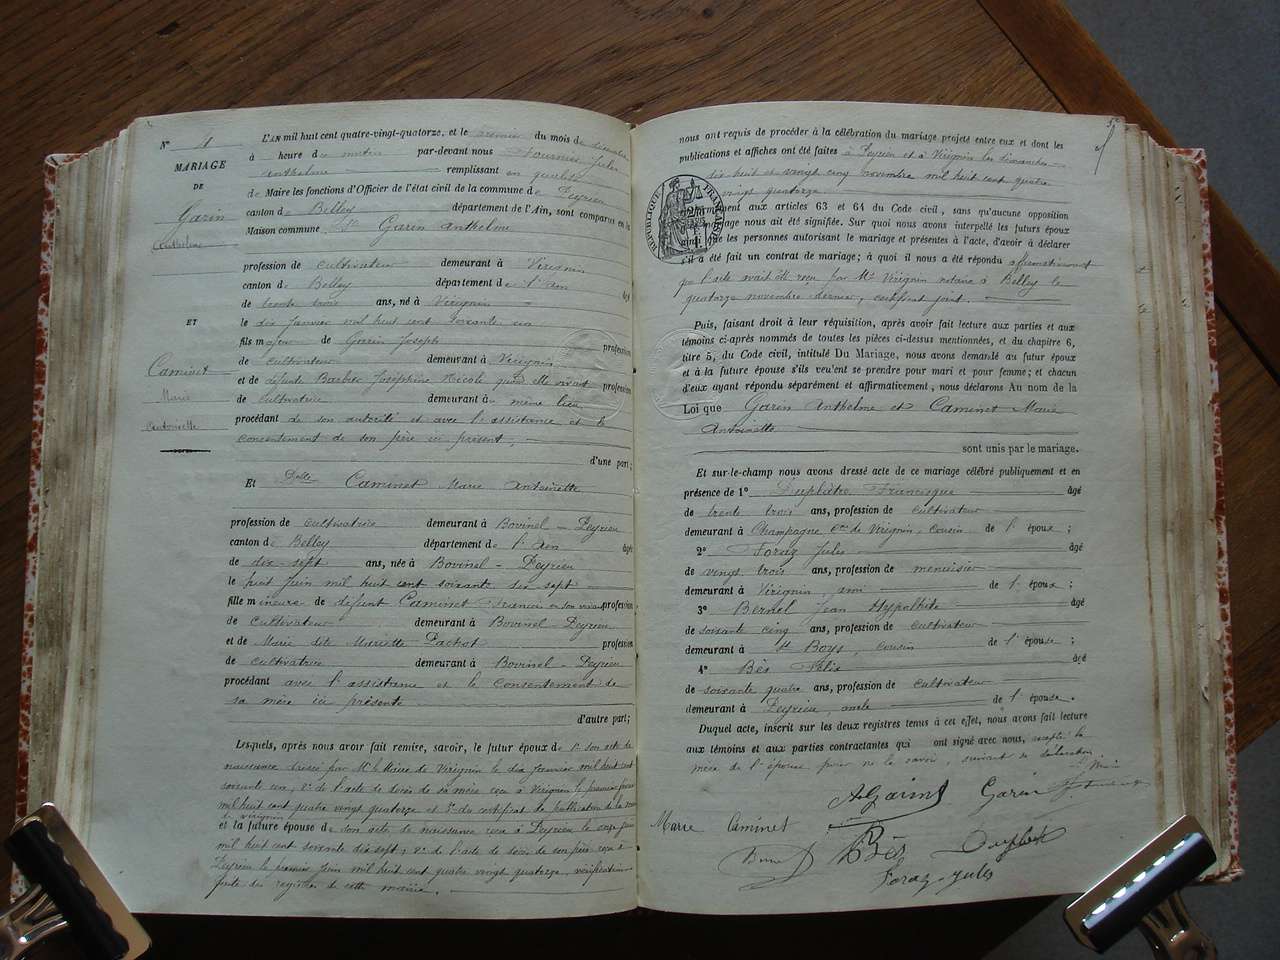 N° 4
MARIAGE
DE
Garin
Anthelme
ET
Caminet
Marie
Antoinette
L'AN mil huit cent quatre-vingt-quatorze, et le premier du mois de décembre
à heure du matin par-devant nous Fournier Jules
Anthelme remplissant en qualité
de Maire les fonctions d'Officier de l'état civil de la commune de Peyrieu
canton de Belley département de l'Ain, sont comparus en la
Maison commune Garin Anthelme
profession de cultivateur demeurant à Virignin
canton de Belley département de l'Ain âgé
de trente trois ans, né à Virignin
le dix Janvier mil huit cent soixante un
fils majeur de Garin Joseph profession
de cultivateur demeurant à Virignin
et de défunte Barbier Joséphine Nicole quand elle vivait profession
de cultivatrice demeurant à même lieu
procédant de son autorité et avec l'assistance et le
consentement de son père ici présent,
d'une part;
Et Delle Caminet Marie Antoinette
profession de cultivatrice demeurant à Bovinel - Peyrieu
canton de Belley département de l'Ain âgée
de dix sept ans, née à Bovinel - Peyrieu
le huit Juin mil huit cent soixante dix sept
fille mineure de défunt Caminet en son vivant profession
de cultivateur demeurant à Bovinel - Peyrieu
et de Marie dite Mariette Pachot profession
de cultivatrice demeurant à Bovinel - Peyrieu
procédant avec l'assistance et le consentement de
sa mère ici présente
d'autre part;
Lesquels, après nous avoir fait remise, savoir, le futur époux de 1° son acte de
naissance dressé par Mr le Maire de Virignin le dix Janvier mil huit cent
soixante un, 2° de l'acte de décès de sa mère reçu à Virignin le premier
mil huit cent quatre vingt quatorze et 3° du certificat de publication de la
de Virignin
et la future épouse de son acte de naissance reçu à Peyrieu le onze juin
mil huit cent soixante dix sept; 2° de l'acte de décès de son père reçu à
Peyrieu le Juin mil huit cent quatre vingt quatorze, vérification
faite des registres de cette mairie.
nous ont requis de procéder à la célébration du mariage projeté entre eux et dont les
publications et affiches ont été faites à Peyrieu et à Virignin les dimanches
dix huit et vingt cinq novembre mil huit cent quatre
vingt quatorze
RÉPUBLIQUE FRANÇAISE
conformément aux articles 63 et 64 du Code civil, sans qu'aucune opposition
mariage nous ait été signifiée. Sur quoi nous avons interpellé les futurs époux
ainsi que les personnes autorisant le mariage et présentes à l'acte, d'avoir à déclarer
s'il a été fait un contrat de mariage; à quoi il nous a été répondu affirmativement
que l'acte avait été reçu par Me Virignin notaire à Belley le
quatorze novembre dernier, certificat joint.
Puis, faisant droit à leur réquisition, après avoir fait lecture aux parties et aux
témoins ci-après nommés de toutes les pièces ci-dessus mentionnées, et du chapitre 6,
titre 5, du Code civil, intitulé Du Mariage, nous avons demandé au futur époux
et à la future épouse s'ils veulent se prendre pour mari et pour femme; et chacun
d'eux ayant répondu séparément et affirmativement, nous déclarons Au nom de la
Loi que Garin Anthelme et Caminet Marie
Antoinette
sont unis par le mariage.
Et sur-le-champ nous avons dressé acte de ce mariage célébré publiquement et en
présence de 1° Duplâtre Francisque âgé
de trente trois ans, profession de cultivateur
demeurant à Champagne cne de Virignin, cousin de l'époux;
2° Foraz Jules âgé
de vingt trois ans, profession de menuisier
demeurant à Virignin, ami de l'époux;
3° Bernel Jean Hypolithe âgé
de soixante cinq ans, profession de cultivateur
demeurant à St Boys, cousin de l'épouse;
4° Bès Félix âgé
de soixante quatre ans, profession de cultivateur
demeurant à Peyrieu, oncle de l'épouse.
Duquel acte, inscrit sur les deux registres tenus à cet effet, nous avons fait lecture
aux témoins et aux parties contractantes qui ont signé avec nous, excepté la
mère de l'épouse pour ne le savoir, suivant sa déclaration
A Garin Garin
Marie Caminet
Bès
Foraz Jules